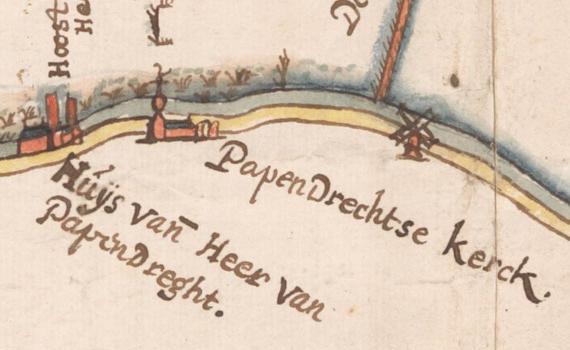 Hoost
He
De
PapenDrechtse kerck.
Huÿs van̄ Heer van
PapenDreght.